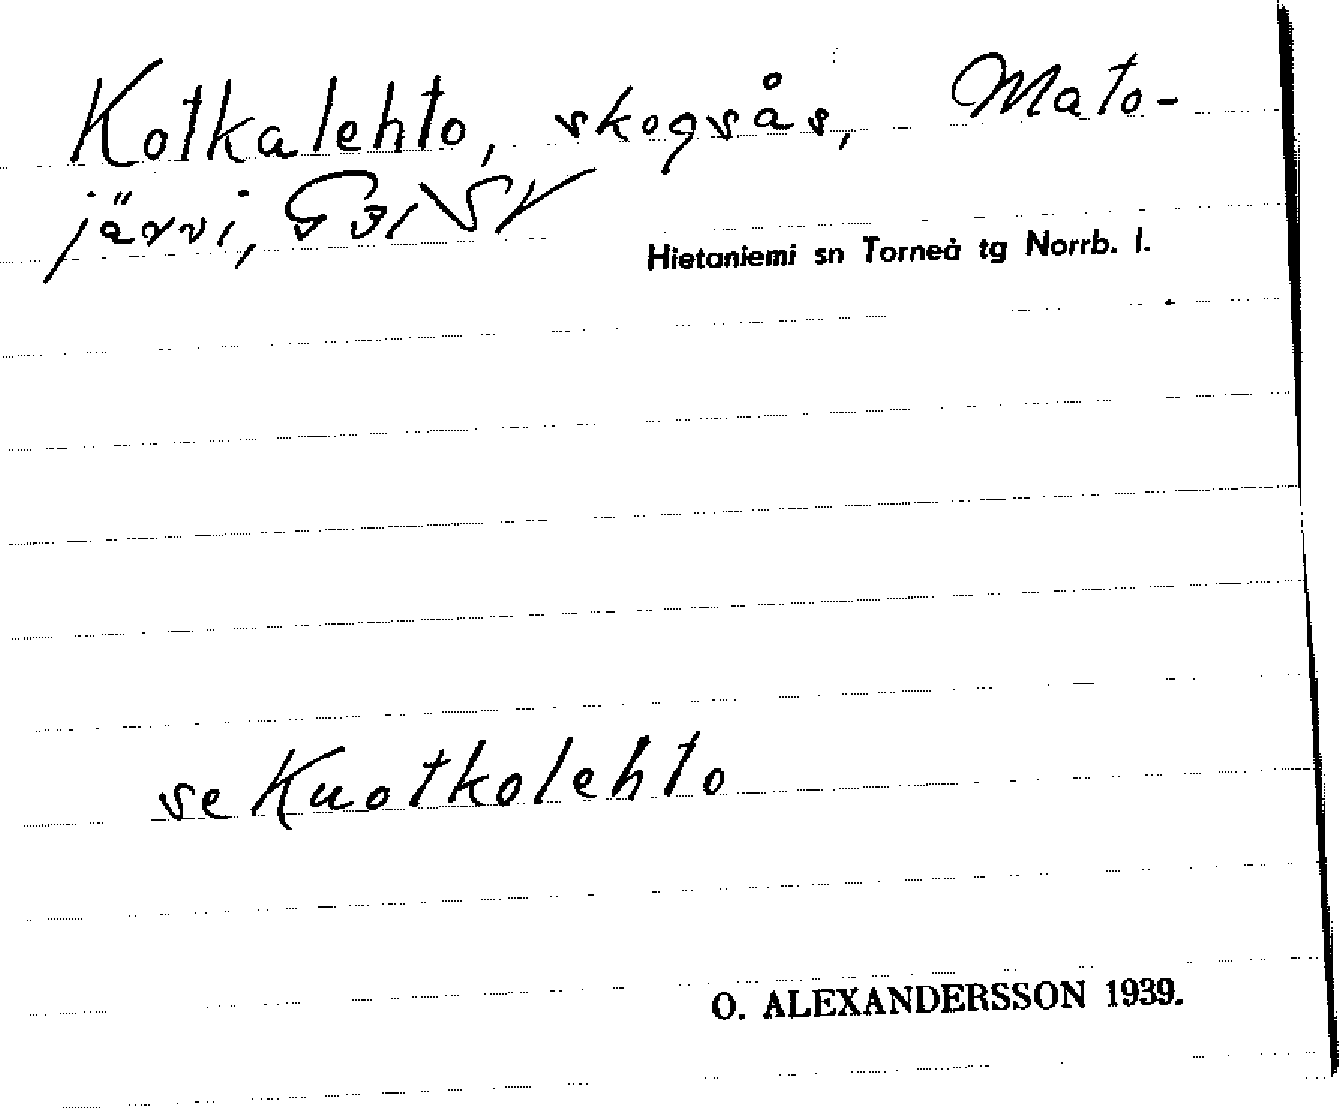 Kotkalehto, skogsås, Mato-
järvi,
Hietaniemi sn Torneå tg Norrb. l.
se Kuotkolehto
O. ALEXANDERSSON 1939.